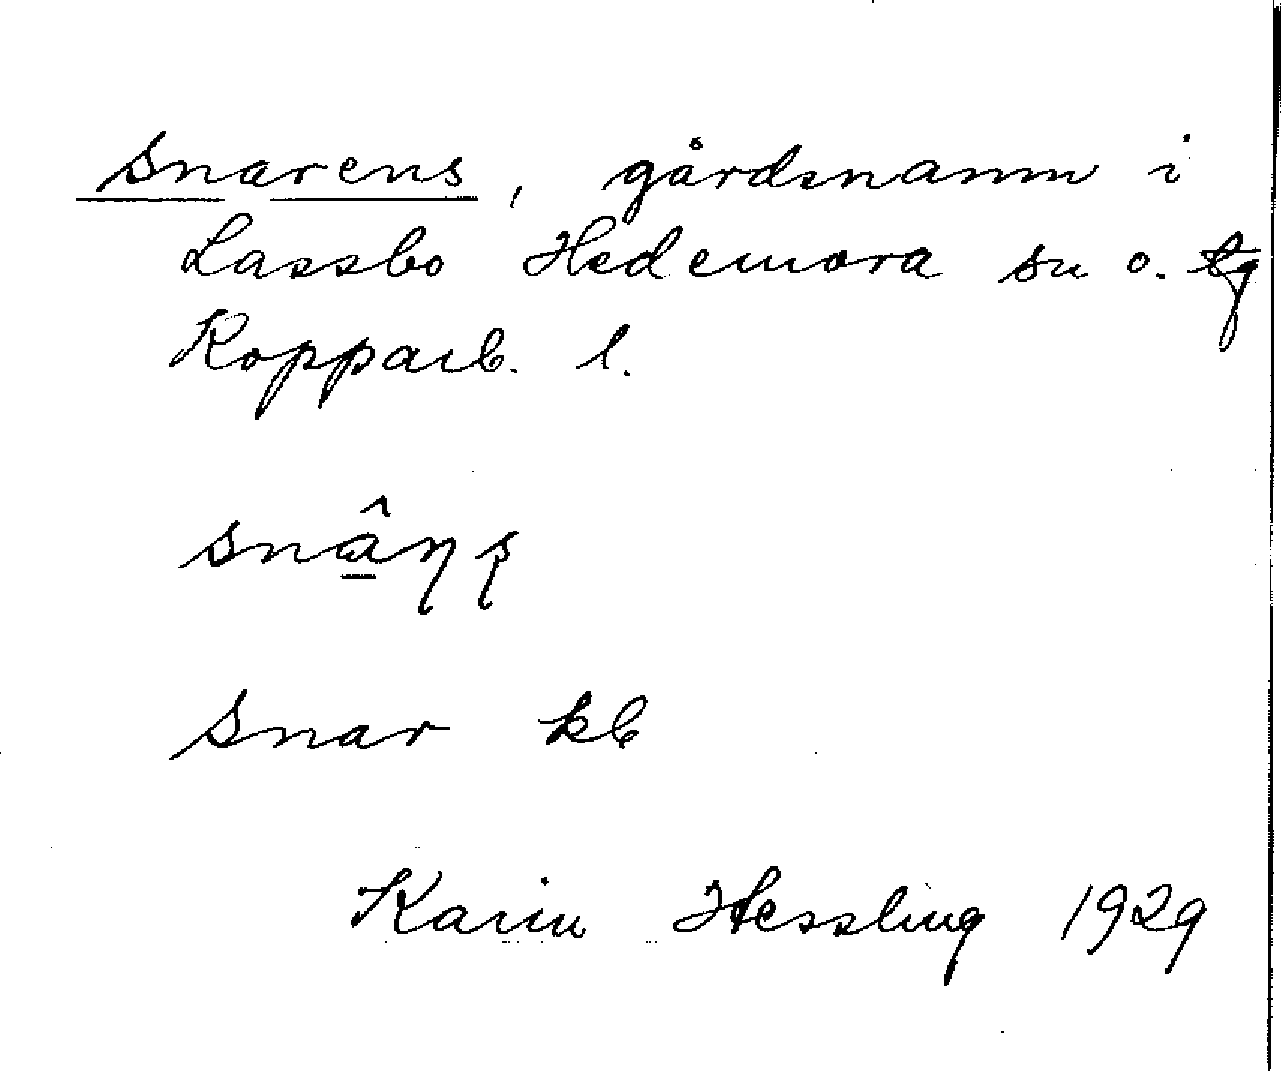 Snarens, gårdsnamn i
Lassbo Hedemora sn o. tg
Kopparb. l.
snâ̱ɳʂ
Snar kb
Karin Hessling 1929